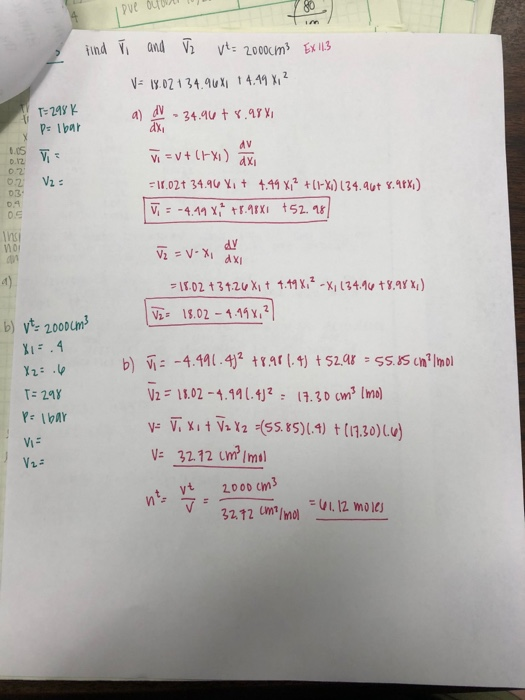 80
Find V̄₁ and V̄₂ Vᵗ = 2000cm³ Ex 11.3
V = 18.02 + 34.96X₁ + 4.49 X₁²
T = 298 K
P = 1 bar
V̄₁ =
V₂ =
a) dV/dx₁ = 34.96 + 8.98 X₁
V̄₁ = V + (1-X₁) dV/dX₁
= 18.02 + 34.96 X₁ + 4.49 X₁² + (1-X₁)(34.96 + 8.98X₁)
V̄₁ = -4.49 X₁² + 8.98X₁ + 52.98
V̄₂ = V - X₁ dV/dX₁
= 18.02 + 34.26 X₁ + 4.49X₁² - X₁ (34.96 + 8.98 X₁)
V̄₂ = 18.02 - 4.49X₁²
b) Vᵗ = 2000cm³
X₁ = .4
X₂ = .6
T = 298
P = 1 bar
V₁ =
V₂ =
b) V̄₁ = -4.49(.4)² + 8.98(.4) + 52.98 = 55.85 cm³/mol
V̄₂ = 18.02 - 4.49(.4)² = 17.30 cm³/mol
V = V̄₁X₁ + V̄₂X₂ = (55.85)(.4) + (17.30)(.6)
V = 32.72 cm³/mol
nᵗ = Vᵗ/V = 2000 cm³ / 32.72 cm³/mol = 61.12 moles